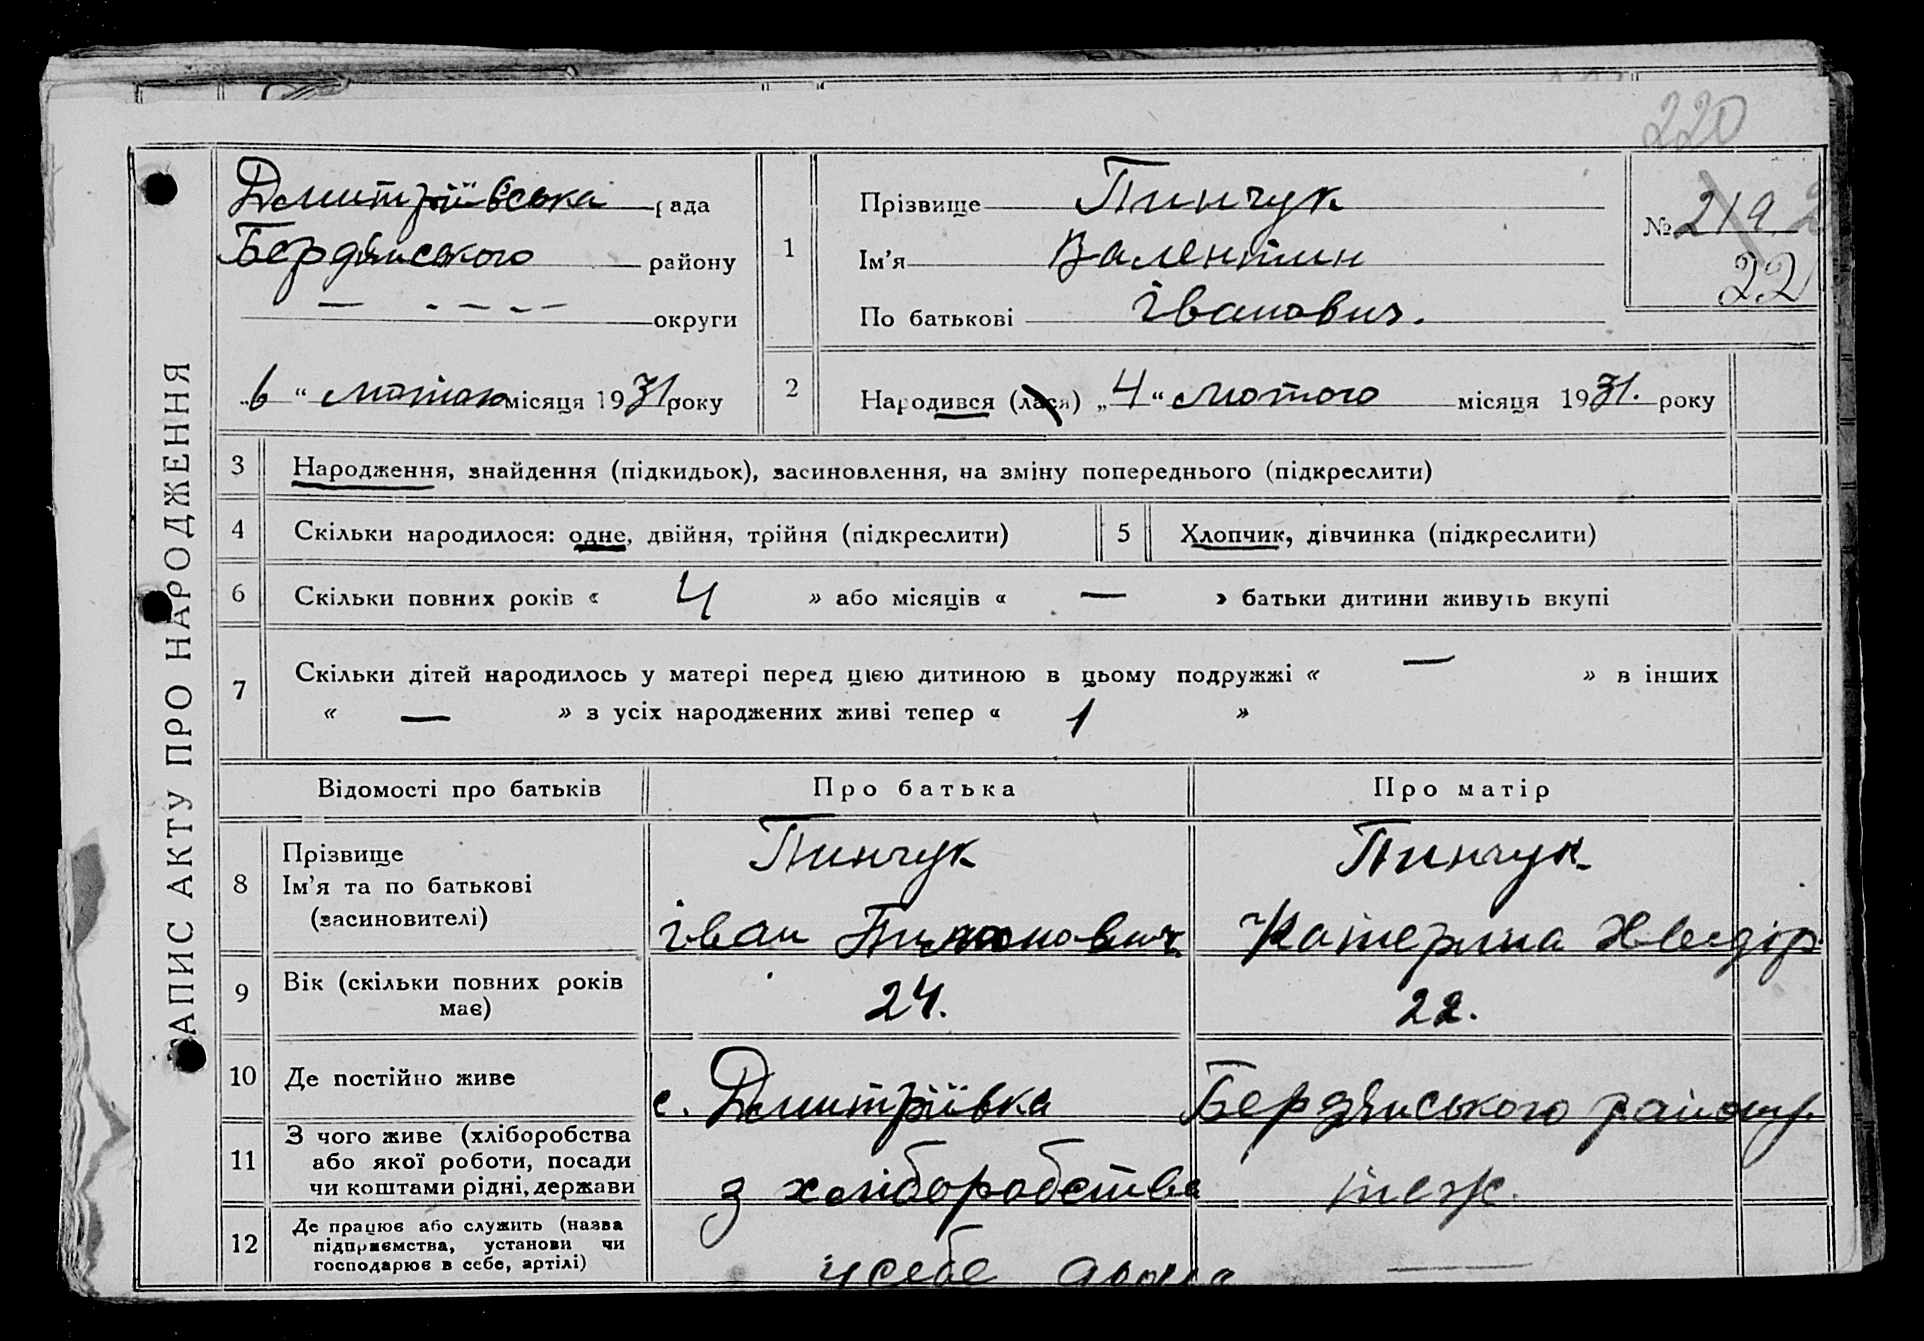 220
ЗАПИС АКТУ ПРО НАРОДЖЕННЯ
Дмитріївська рада
Бердянського району
— - - - - округи
„6“ лютого місяця 1931 року
1
Прізвище Пинчук
Ім'я Валентин
По батькові Іванович.
№ 219
22
2
Народився (лася) „4“ лютого місяця 1931. року
3 Народження, знайдення (підкидьок), засиновлення, на зміну попереднього (підкреслити)
4 Скільки народилося: одне, двійня, трійня (підкреслити) 5 Хлопчик, дівчинка (підкреслити)
6 Скільки повних років « 4 » або місяців « — » батьки дитини живуть вкупі
7 Скільки дітей народилось у матері перед цією дитиною в цьому подружжі « — » в інших
« — » з усіх народжених живі тепер « 1 »
Відомості про батьків Про батька Про матір
8 Прізвище Пинчук Пинчук
Ім'я та по батькові
(засиновителі) Іван Катерина Хведір
9 Вік (скільки повних років має) 24. 22.
10 Де постійно живе с. Дмитріївка Бердянського району.
11 З чого живе (хліборобства
або якої роботи, посади
чи коштами рідні, держави з хліборобства теж.
12 Де працює або служить (назва
підприємства, установи чи
господарює в себе, артілі) у себе дома —